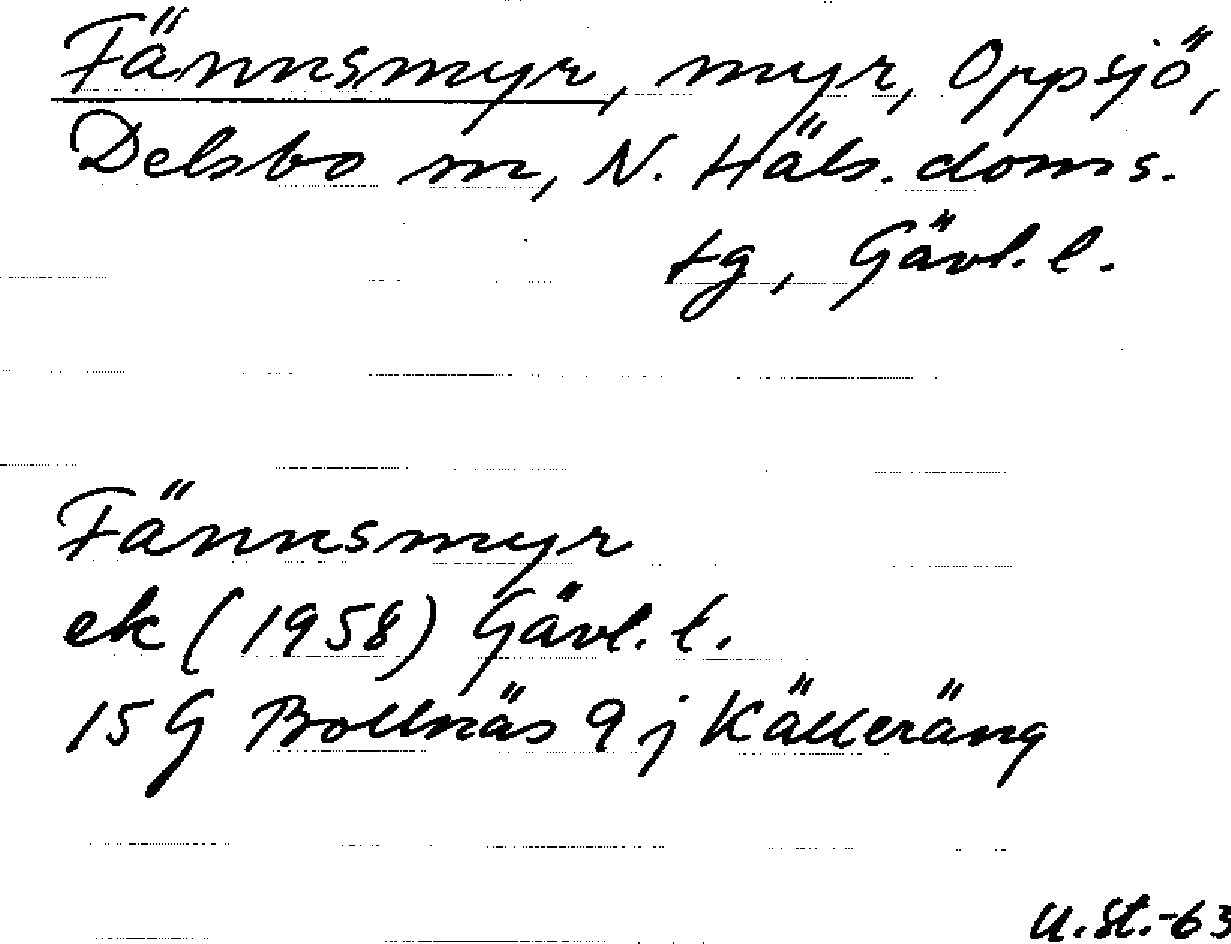 Fännsmyr, myr, Oppsjö,
Delsbo sn, N. Häls. doms.
tg, Gävl. l.
Fännsmyr
ek (1958) Gävl. l.
15 G Bollnäs 9 j Källeräng
U.St.-63